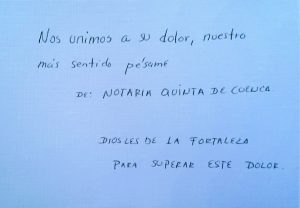 Nos unimos a su dolor, nuestro
más sentido pésame
DE: NOTARIA QUINTA DE CUENCA.
DIOS LES DE LA FORTALEZA
PARA SUPERAR ESTE DOLOR.